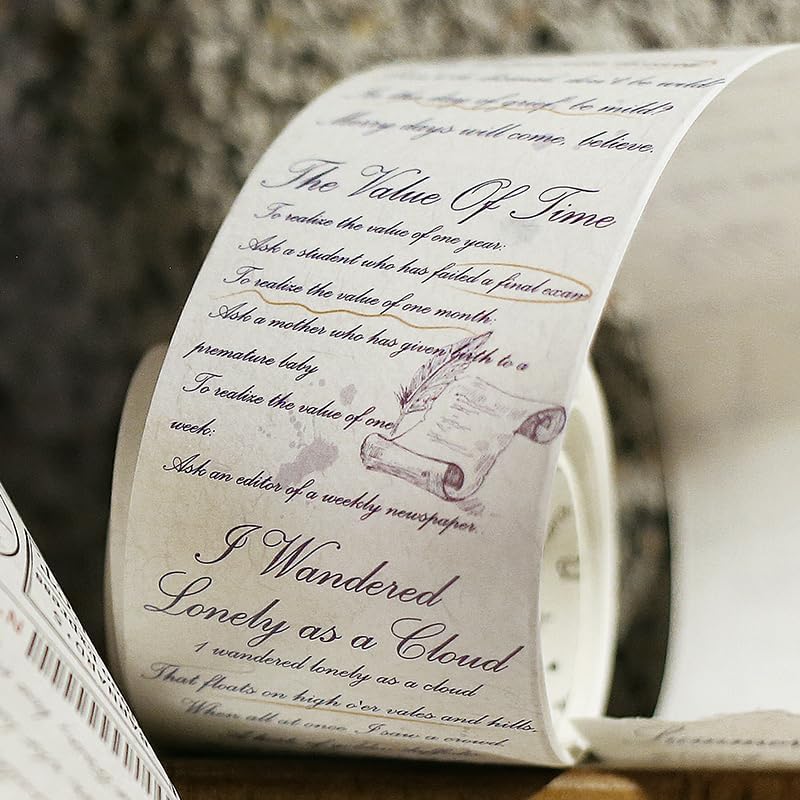 don't be wild
In the day of grief, be mild?
Merry days will come, believe.
The Value Of Time
To realize the value of one year:
Ask a student who has failed a final exam
To realize the value of one month:
Ask a mother who has given birth to a
premature baby
To realize the value of one
week:
Ask an editor of a weekly newspaper.
I Wandered
Lonely as a Cloud
I wandered lonely as a cloud
That floats on high o'er vales and hills.
When all at once I saw a crowd.
Summer